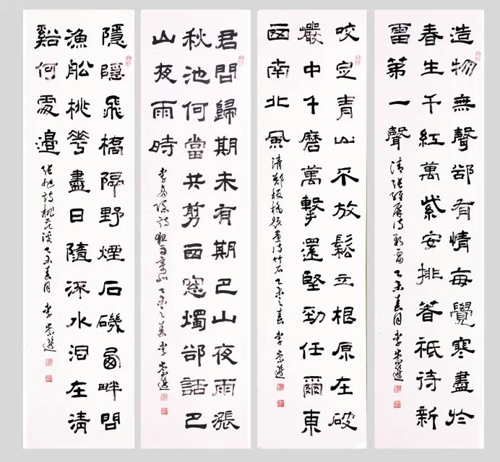 造物無聲郤有情每覺寒盡於
春生千紅萬紫安排著祇待新
雷第一聲
清張維屏詩新雷 乙未春月 李崇
咬定青山不放鬆立根原在破
巖中千磨萬擊還堅勁任爾東
西南北風
清鄭板橋題畫詩竹石 乙未之春 李崇
君問歸期未有期巴山夜雨漲
秋池何當共剪西窗燭郤話巴
山夜雨時
李商隱詩夜雨寄北 乙未之春 李崇
隱隱飛橋隔野煙石磯西畔問
漁船桃華盡日隨流水洞在清
谿何處邊
張旭詩桃花溪 乙未春月 李崇